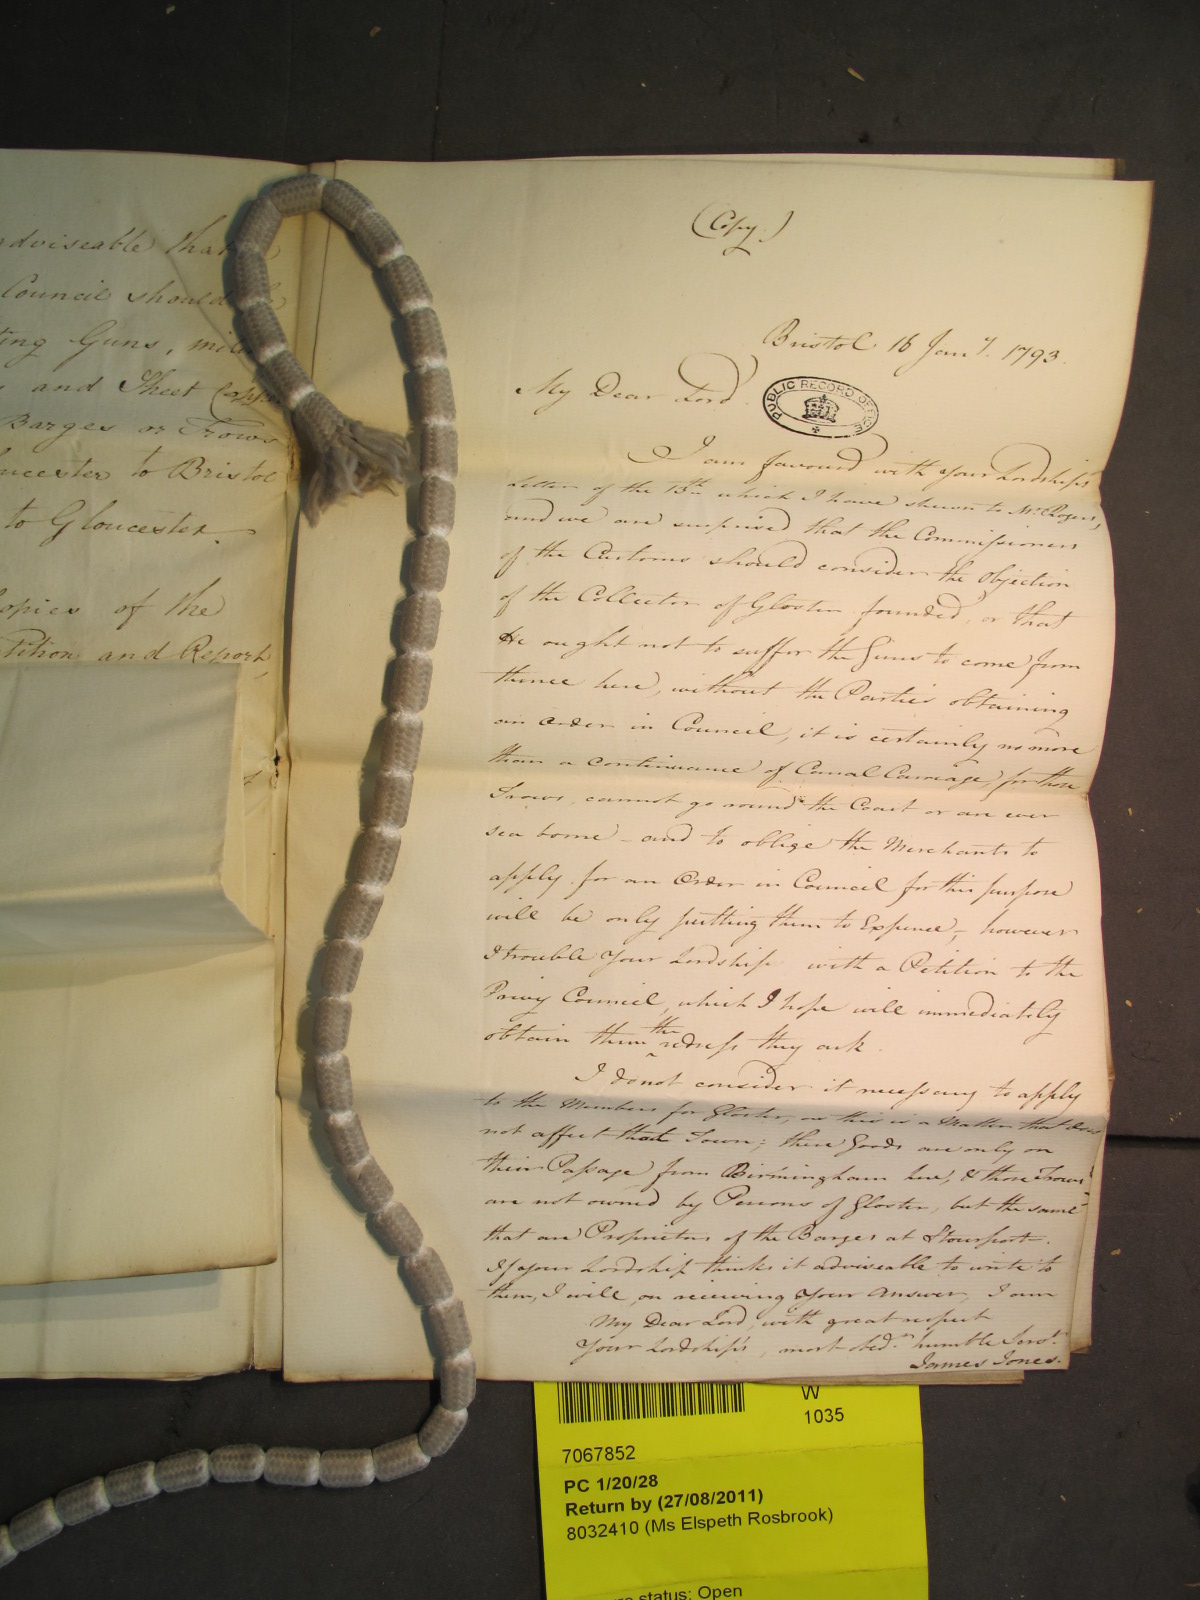 adviseable that
Council should be
ting Guns, mili
and Sheet Copper
Barges or Trows
ucester to Bristol
to Gloucester.
opies of the
tition and Report,
(Copy.)
Bristol 16 Jan.y 1793.
My Dear Lord
PUBLIC RECORD OFFICE
I am favour'd with your Lordships
Letter of the 13th which I have shewn to Mr. Rogers,
and we are surprised that the Commissioners
of the Customs should consider the Objection
of the Collector of Gloster founded, or that
He ought not to suffer the Guns to come from
thence here, without the Parties obtaining
an Order in Council, it is certainly no more
than a continuance of Canal Carriage, for those
Trows, cannot go round the Coast or are ever
sea borne - and to oblige the Merchants to
apply for an Order in Council for this purpose
will be only putting them to Expence, - however
I trouble Your Lordship with a Petition to the
Privy Council, which I hope will immediately
obtain them the redress they ask.
I do not consider it necessary to apply
to the Members for Gloster, as this is a Matter that does
not affect that Town; these Goods are only on
their Passage from Birmingham here, & those Trows
are not owned by Persons of Gloster, but the same
that are Proprietors of the Barges at Stourport -.
If your Lordship thinks it adviseable to write to
them, I will, on receiving Your Answer, I am
My Dear Lord, with great respect
Your Lordship's, most obedt. humble Servt.
James Jones.
W
1035
7067852
PC 1/20/28
Return by (27/08/2011)
8032410 (Ms Elspeth Rosbrook)
status: Open